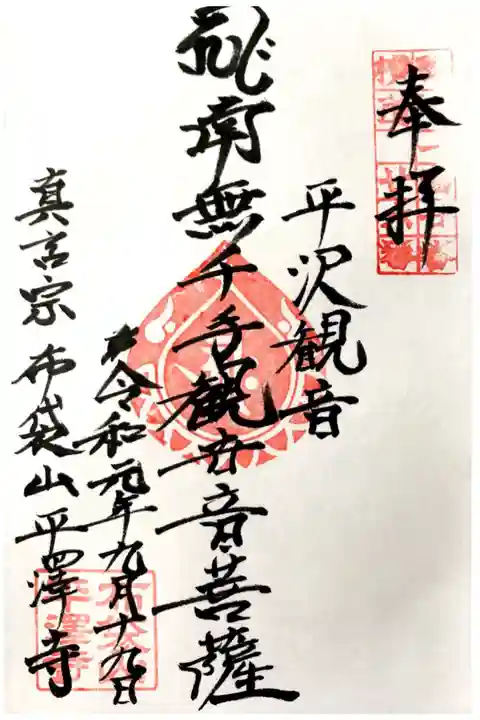 奉拝
平沢観音
南無千手観世音菩薩
令和元年九月十九日
真言宗 布袋山平澤寺